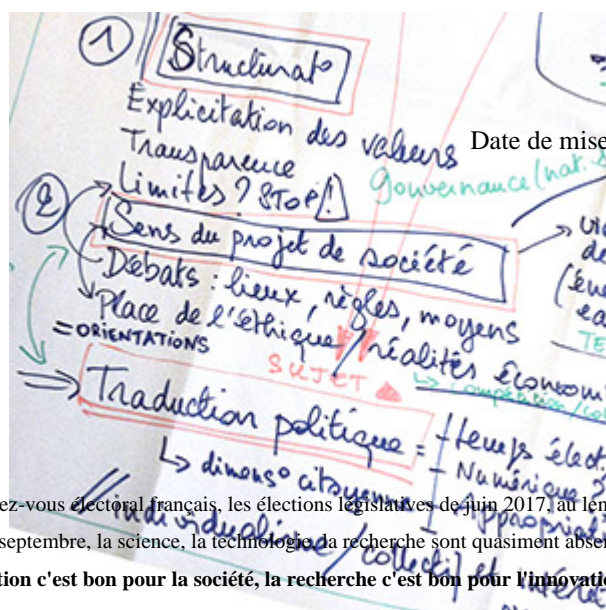 1 Structurat°
Explicitation des valeurs
Transparence
Limites ? STOP !
Date de mise
Gouvernance (nat.
2 Sens du projet de société
Débats : lieux, règles, moyens
Place de l'éthique / réalités économi
= ORIENTATIONS
SUJET
compétition /
⇒ Traduction politique =
temps élect.
Numérique ?
↳ dimens° citoyenne
ez-vous électoral français, les élections législatives de juin 2017, au len
individualisme / collectif et
septembre, la science, la technologie, la recherche sont quasiment absen
tion c'est bon pour la société, la recherche c'est bon pour l'innovatio